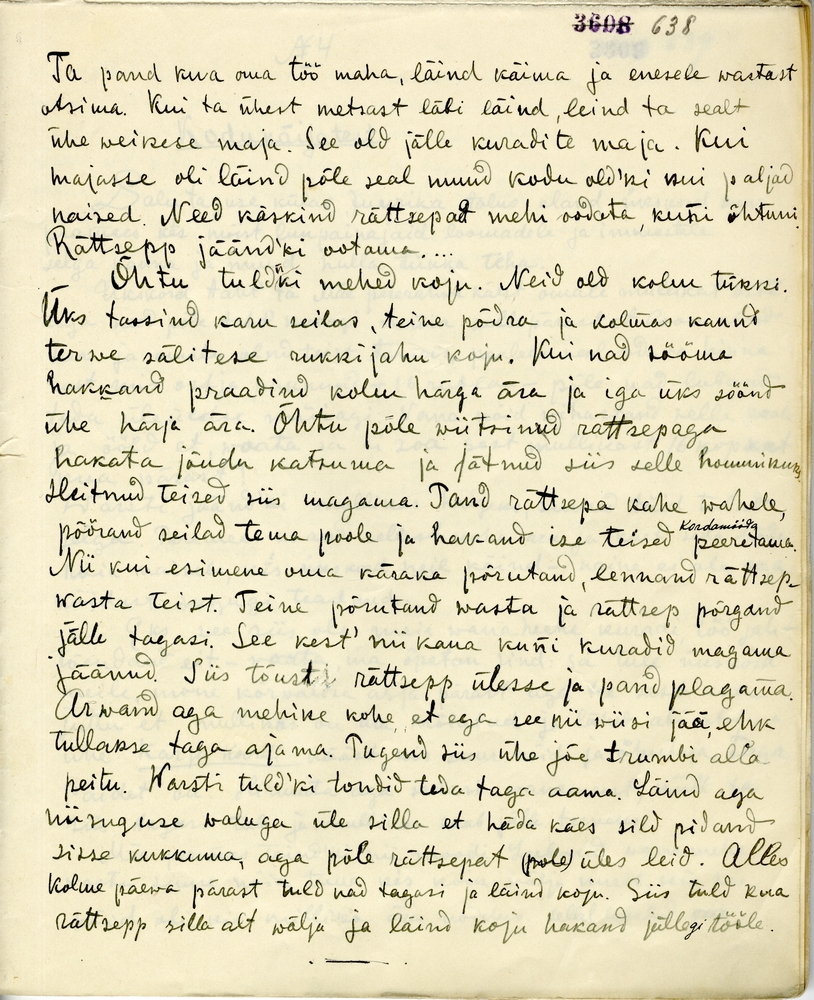 3608 638
Ta pand kua oma töö maha, läind käima ja enesele wastast
otsima. Kui ta ühest metsast läbi läind, leind ta sealt
ühe weikese maja. See old jälle kuradite maja. Kui
majasse oli läind põle seal muud kodu old'ki kui paljad
naised. Need käskind rättsepat mehi oodata, kuñi õhtuni.
Rättsepp jäänd'ki ootama. ...
Õhtu tuld'ki mehed koju. Neid old kolm tükki.
Üks tassind karu seilas, teine põdra ja kolmas kannd
terwe sälitese rukkijahu koju. Kui nad sööma
hakkand praadind kolm härga ära ja iga üks söönd
ühe härja ära. Õhtu põle wiitsinud rättsepaga
hakata jõudu katsuma ja jätnud siis selle hommikuks.
Heitnud teised siis magama. Pand rättsepa kahe wahele,
pöörand seilad tema poole ja hakand ise teised kordamööda peeretama.
Nii kui esimene oma käraka põrutand, lennand rättsep
wasta teist. Teine põrutand wasta ja rättsep põrgand
jälle tagasi. See kest' niikaua kuñi kuradid magama
jäänud. Siis tõust rättsepp ülesse ja pand plagama.
Arwand aga mehike kohe, et ega see nii wiisi jää, ehk
tullakse taga ajama. Pugend siis ühe jõe trumbi alla
peitu. Warsti tuld'ki tondid teda taga aama. Läind aga
niisuguse waluga üle silla et häda käes sild pidand
sisse kukkuma, aga põle rättsepat (pole) üles leid. Alles
kolme päewa pärast tuld nad tagasi ja läind koju. Siis tuld kua
rättsepp silla alt wälja ja läind koju hakand jällegi tööle.